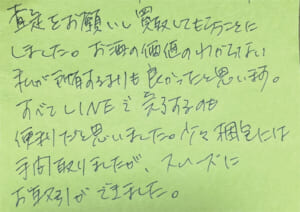 査定をお願いし買取してもらうことに
しました。お酒の価値のわからない
私が所有するよりも良かったと思います。
すべてLINEで完了するのも
便利だと思いました。少々梱包には
手間取りましたが、スムーズに
お取引ができました。